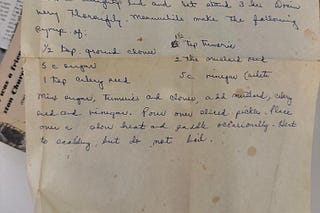 and let stand 3 hrs. Drain
very thoroughly. Meanwhile make the following
syrup of:
1/2 tsp. ground cloves 1 1/2 tsp Tumeric
5 c sugar 2 tbs mustard seed
1 tsp celery seed 5c vinegar
Mix sugar, tumeric and clove, add mustard, celery
seed and vinegar. Pour over sliced pickle. Place
over slow heat and paddle occasionally. Heat
to scalding, but do not boil.